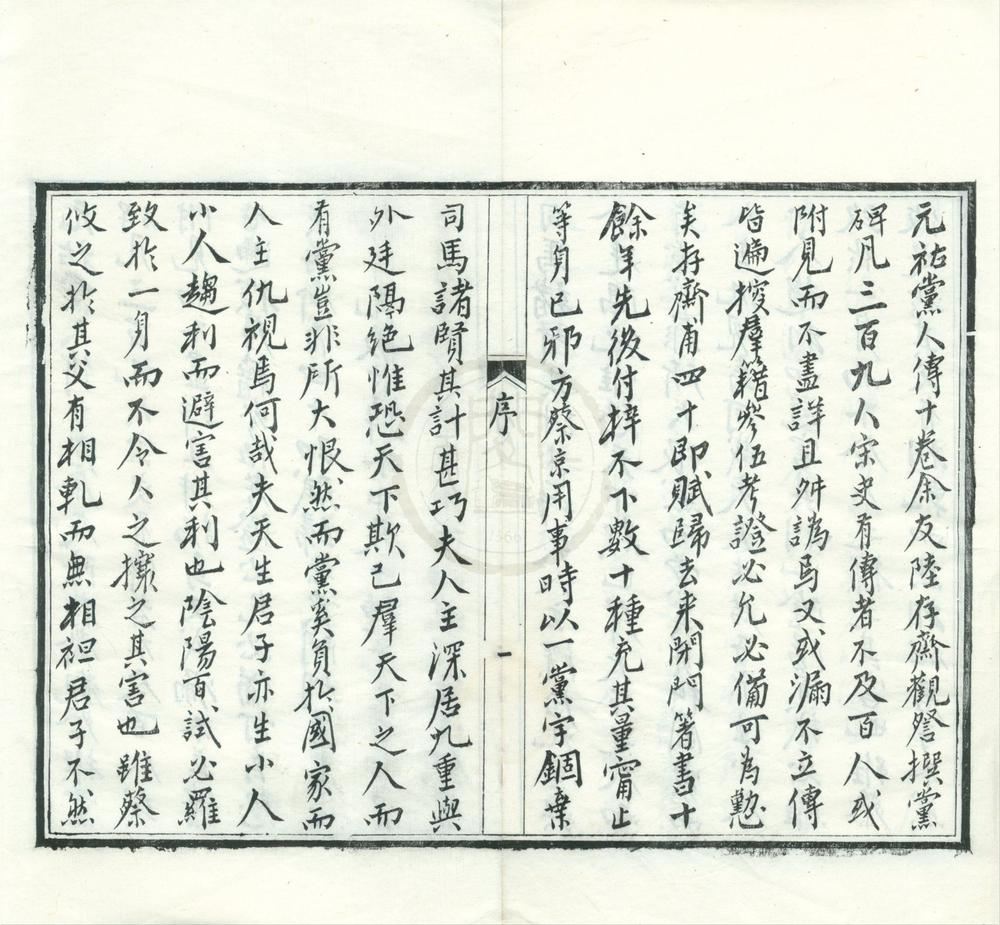 元祐黨人傳十卷余友陸存齋觀詧撰黨
碑凡三百九人宋史有傳者不及百人或
附見而不盡詳且舛譌焉又或漏不立傳
皆遍搜羣籍參伍考證必允必備可為懃
矣存齋甫四十即賦歸去来閉門箸書十
餘年先後付梓不下數十種充其量甯止
等身已邪方蔡京用事時以一黨字錮棄
序
一
司馬諸賢其計甚巧夫人主深居九重與
外廷隔絶惟恐天下欺己羣天下之人而
有黨豈非所大恨然而黨奚負於國家而
人主仇視焉何哉夫天生君子亦生小人
小人趨利而避害其利也陰陽百試必羅
致於一身而不令人之攘之其害也雖蔡
攸之於其父有相軋而無相袒君子不然